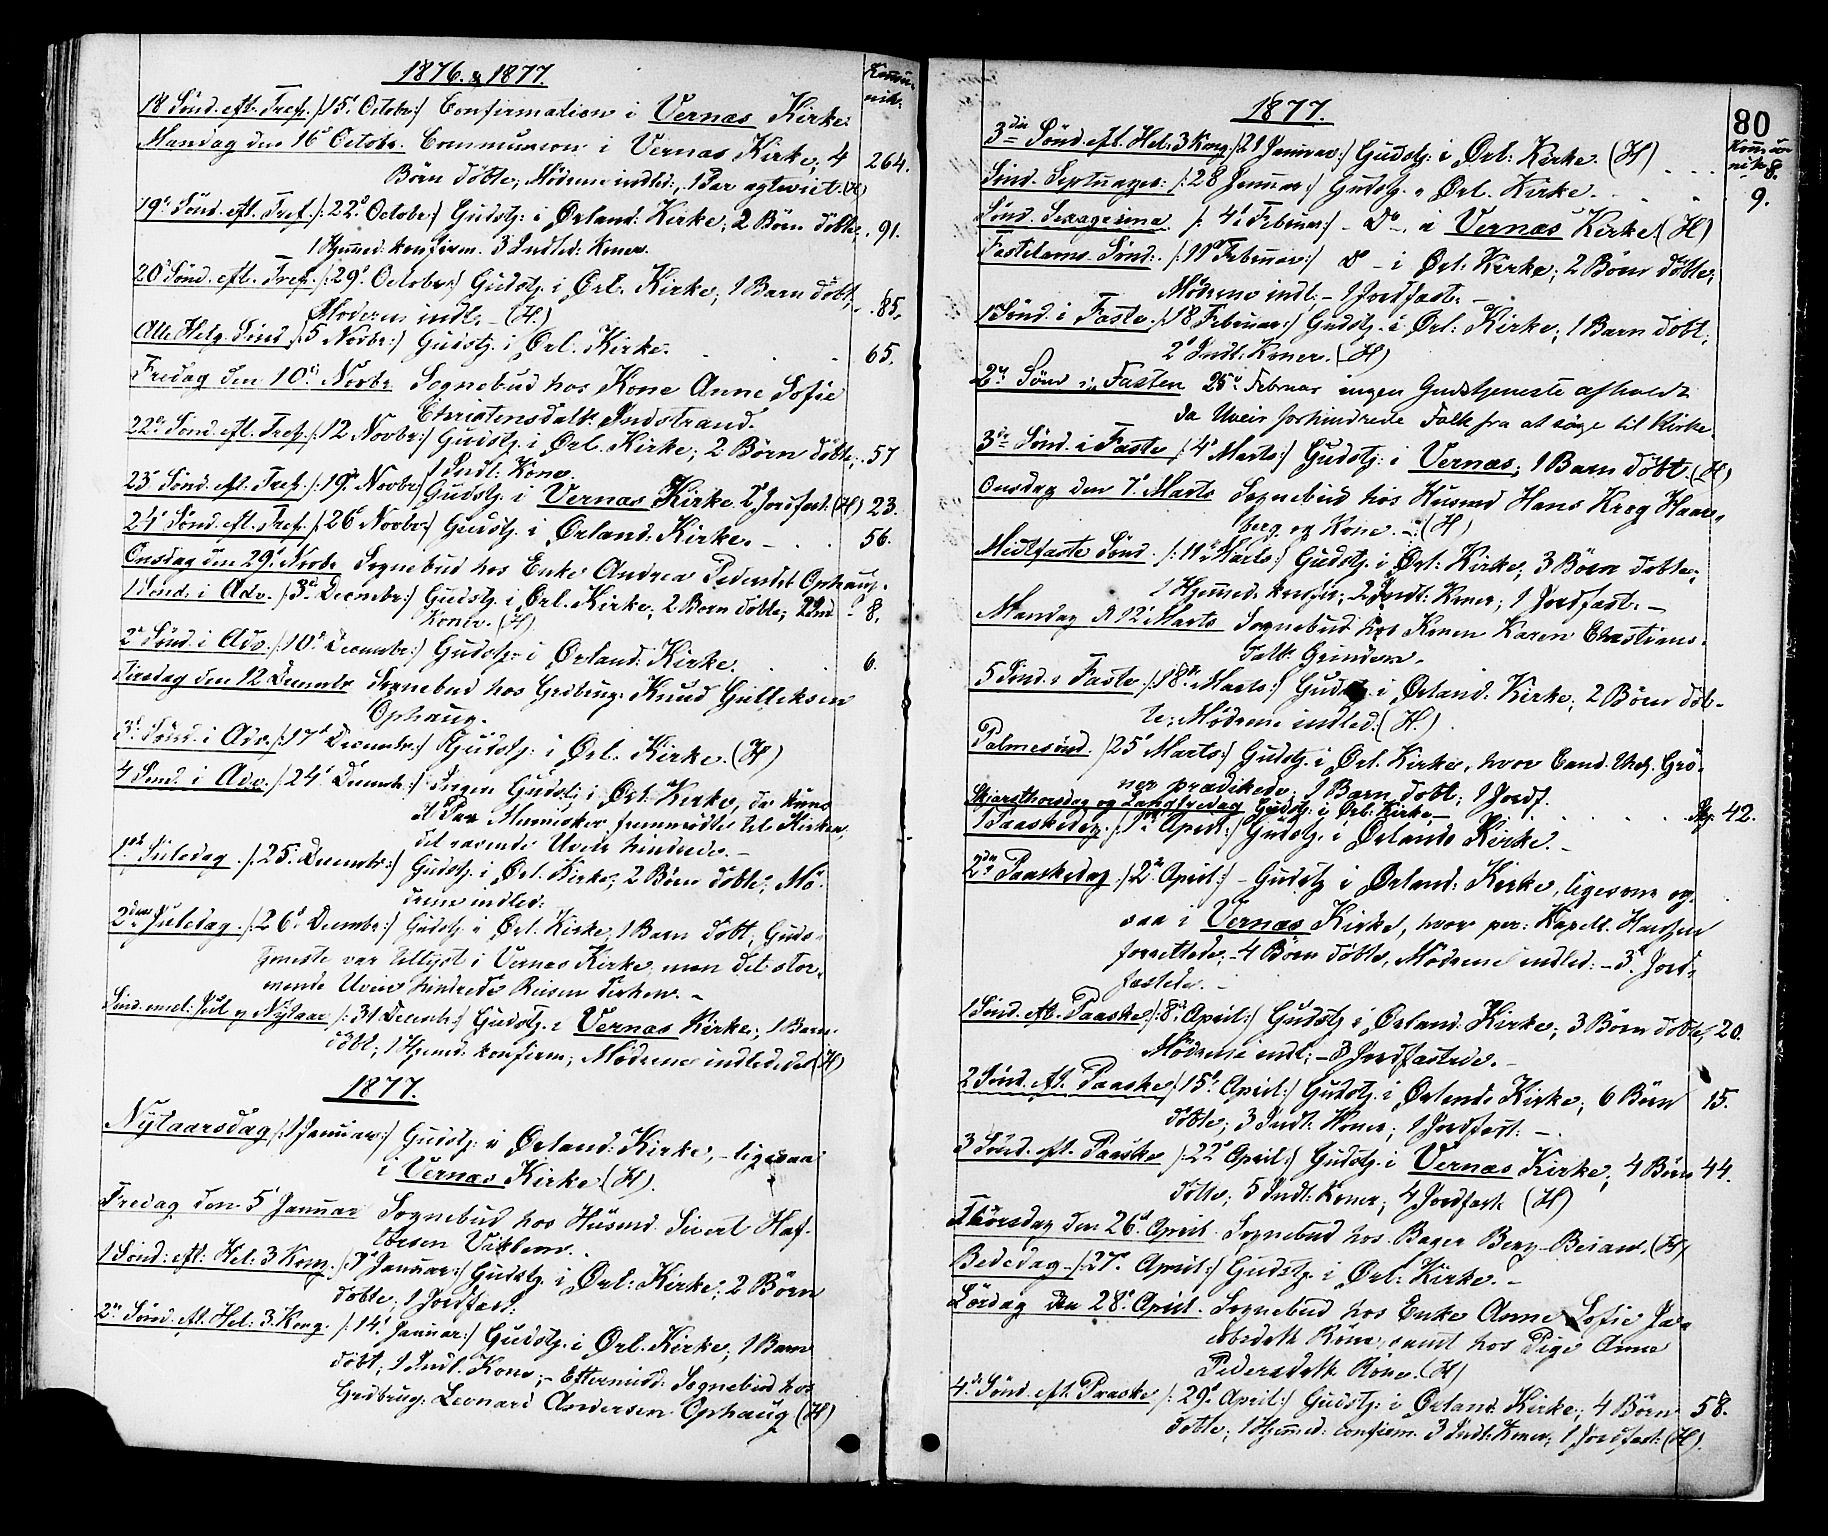 1876. & 1877.
Kommu-
nik.
18 Sönd. eft. Tref. /:15 Octobr:/ Confirmation i Vernæs Kirke.
Mandag den 16 Octobr. Communion i Vernæs Kirke, 4 264.
Börn döbte; Mödrene indled., 1 Par egteviet. (H)
19de Sönd. eft. Tref. /:22 Octobr:/ Gudstj: i Ørland: Kirke; 2 Börn döbte, 91.
1 Hjemmed. konfirm. 3 Indled: Koner.
20 Sönd. eft. Tref. /:29 Octobr:/ Gudstj. i Ørl. Kirke; 1 Barn döbt, 85.
Moderen indl. – (H)
Alle Helg. Sönd /:5 Novbr:/ Gudstj. i Ørl. Kirke. 65.
Fredag den 10de Novbr Sognebud hos Kone Anne Sofie
Christensdatt: Indstrand.
22de Sönd. eft. Tref. /:12 Novbr:/ Gudstj. i Ørl. Kirke; 2 Börn döbte; 57
1 Indl: Kone
23 Sönd. eft. Tref. /:19 Novbr:/ Gudstj. i Vernæs Kirke 2 Jordfest. (H) 23.
24 Sönd. eft. Tref. /:26 Novbr:/ Gudstj. i Ørland. Kirke. – 56.
Onsdag den 29. Novbr Sognebud hos Enke Andrea Pedersdt. Ophaug.
1 Sönd. i Adv. /:3 Decmbr:/ Gudstj. i Ørl. Kirke; 2 Börn döbte; 8.
Koner. (H)
2 Sönd. i Adv. /:10 Decmbr:/ Gudstj. i Ørland: Kirke. 6.
Tirsdag den 12 Decmbr Sognebud hos Grdbrug: Knud Gulliksen
Ophaug.
3 Sönd. i Adv. /:17 Decmbr:/ Gudstj: i Ørl. Kirke. (H)
4 Sönd. i Adv. /:24 Decmbr:/ Ingen Gudstj: i Ørl: Kirke, da kuns
et Par Mennesker fremmödte til Kirken
det rasende Uveir hindrede. –
1ste Juledag. /:25. Decmbr:/ Gudstj. i Ørl. Kirke; 2 Börn döbte; Mö-
drene indled:
2den Juledag. /:26 Decmbr:/ Gudstj: i Ørl. Kirke; 1 Barn döbt; Guds-
tjeneste var tillyst i Vernæs Kirke, men det stor-
mende Uveir hindrede Reisen derhen. –
Sönd. mel: Jul og Nytaar /:31 Decmbr:/ Gudstj. i Vernæs Kirke; 1 Barn
döbt; 1 Hjemd. konfirm; Mödrene indlededes (H)
1877.
Nytaarsdag /:1 Januar:/ Gudstj: i Ørland: Kirke, – ligesaa
i Vernæs Kirke (H).
Fredag den 5 Januar Sognebud hos Husmd. Sivert Haf-
torsen Viklem.
1 Sönd: eft: Hel: 3 Kong. /:7 Januar:/ Gudstj. i Ørl: Kirke; 2 Börn
döbte; 1 Jordfest:
2de Sönd. eft. Hel: 3 Kong. /:14 Januar:/ Gudstj. i Ørl. Kirke, 1 Barn
döbt; 1 Indl. Kone; – Eftermidd: Sognebud hos
Grdbrug: Leonard Andersen Ophaug (H)
80
1877.
Kommu-
nik.
3die Sönd. eft. Hel: 3 Kong /:21 Januar:/ Gudstj: i Ørl: Kirke. (H) 8.
Sönd. Septuages: /:28 Januar:/ Gudstj. i Ørl. Kirke. 9.
Sönd. Sexagesima /: 4 Februar:/ – Do – i Vernæs Kirke (H)
Fastelavns Sönd: /:11 Februar:/ Do – i Ørl. Kirke; 2 Börn döbte;
Mödrene indl; – 1 Jordfæst. –
1 Sönd. i Faste. /:18 Februar:/ Gudstj: i Ørl: Kirke; 1 Barn döbt;
2 Indl: Koner. (H)
2de Sönd i Fasten 25de Februar ingen Gudstjeneste afholdt
da Uveir forhindrede Folk fra at söge til Kirke.
3die Sönd. i Faste /:4 Marts:/ Gudstj: i Vernæs; 1 Barn döbt (H)
Onsdag den 7 Marts Sognebud hos Husmd Hans Kreg Haar-
berg og Kone. – (H)
Midtfaste Sönd. /:11 Marts:/ Gudstj: i Ørl: Kirke; 3 Börn döbte;
1 Hjemmed. konfir; 2 Indl: Koner; 1 Jordfast: –
Mandag d 12 Marts Sognebud hos Konen Karen Christians-
datt: Grinden.
5 Sönd. i Faste. /:18de Marts:/ Gudstj: i Ørland: Kirke, 2 Börn döb-
te; Mödrene indled: (H)
Palmesönd. /:25 Marts:/ Gudstj. i Ørl. Kirke, hvor Cand. theol. Grö-
ner prædikede; 1 Barn döbt; 1 Jordf.
Skjærthorsdag og Langfredag Gudstj: i Ørl: Kirke. – 42.
1 Paaskedag. /:1ste April:/ Gudstj. i Ørlands Kirke. –
2den Paaskedag /:2 April:/ – Gudstj i Ørland: Kirke, ligesom og-
saa i Vernæs Kirke, hvor per: Kapell. Hansen
forrettede, – 4 Börn döbte, Mödrene indled: – 3 Jord-
fæstede. –
1 Sönd. eft. Paaske /:8 April:/ Gudstj i Ørland: Kirke; 3 Börn döbte, 20.
Mödrene indl; – 3 Jordfastede. –
2 Sönd. eft. Paaske /:15 April:/ Gudstj: i Ørlands Kirke; 6 Börn 15.
döbte; 3 Indl: Koner; 1 Jordfest: –
3 Sönd. eft. Paaske /:22 April:/ Gudstj: i Vernæs Kirke; 4 Börn 44.
döbte; 5 Indl: Koner; 4 Jordfæst. (H)
Thorsdag den 26 April. Sognebud hos Bager Berg – Beian, (H)
Bededag /:27 April:/ Gudstj. i Ørl: Kirke. –
Lördag den 28 April. Sognebud hos Enke Anne Sofie Ja-
cobsdatt. samt hos Pige Anne
Pedersdatt. (H)
4de Sönd. eft. Paaske /:29 April:/ Gudstj: i Ørland: Kirke; 4 Börn 58.
döbte; 1 Hjemmed: confirm. 3 Indl: Koner; 1 Jordfæst: (H).